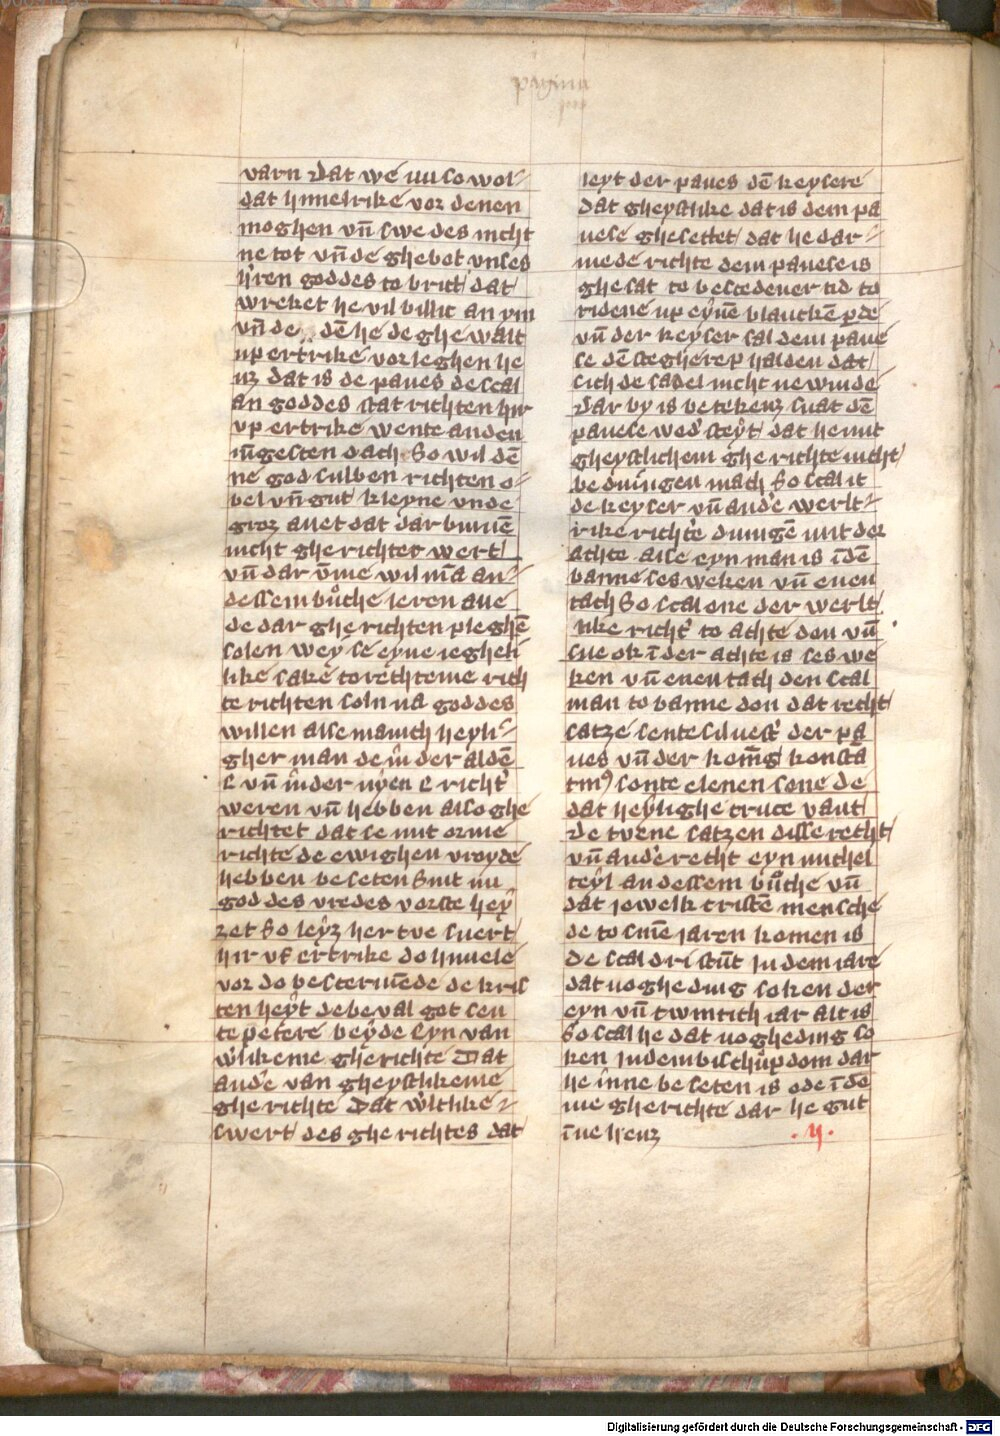 pagina
varn Dat wē nu so wol⸗
dat himelrikē vor denen
moghen vn̄ swe des nicht
ne tot vn̄ dē ghebot vnses
h̄ren goddes to brict dat
wreket he vil billic an ym
vn̄ de dē he de ghewalt
up ertrikē vorleghen he
uz dat is de paues de scal
an goddes stat richten hir
vp ertrikē wente an den
iu̅gesten dach So wil dē
ne god sulben richten o⸗
bel vn̄ gut kleyne vnde
groz auet dat dar binnē
nicht gherichtet wert
vn̄ dar v̄me wil m̄a an⸗
dessem bůche leren alle
de dar gherichten pleghē
solen wey se eyne ieghelī
like sakē to rechteme rich
te richten soln na goddes
willen alse manich heyli⸗
gher man de in̄ der aldē
E vn̄ in̄der nyen E richt̕
weren vn̄ hebben also ghe
richtet dat se mit ormē
richtē de ewighen vroydē
hebben beseten Swt nu
god des vredes vorste heÿ
zet So leÿz her tve swert
hir vf ertrike do himelē
vor do bestermēde de kris
ten heÿt de beval got sen
te peterē beÿde Eyn van
w̕likeme gherichtē Dat
and̕e van gheystlikemē
gherichtē Dat w̕ltlikē⸗
swert des gherichtes dat
leyt der paues dē keyserē
Dat gheystlike dat is dem pa
uese ghesettet dat he dar⸗
mede richte dem pauese is
ghesat to bescedener tid to
ridene up eynē blanckē p̲dē
vn̄ der keyser sal dem paue
se dē stegherep halden dat
sich de sadel nicht ne windē
Dar by is betekenz swat dē
pauese wed̕steÿt dat he mit
gheystlichem gherichte nicht
beduingen mach So scal it
de keyser vn̄ and̕e werlt⸗
rike richt̕e duingē mit der
achte alse eyn man is īdē
bannē ses weken vn̄ enen
tach So scal one der werlt
like richt̕ to achte don vn̄
swe ok ī der achte is ses we
ken vn̄ enen tach den scal
man to banne don dat recht
satzē sente siluest̕ der pa
ues vn̄ der konīg konsta
tin⁹ sonte elenen sone de
dat heylighe cruce vant
De tvene satzen disse recht
vn̄ and̕e recht eyn michel
teÿl an dessem bůche vn̄
dat iowelk cristē menschē
de to sinē iaren komen is
De scal dri stūt In dem iarē
dat uogheding soken der
eyn vn̄ twintich iar alt is
So scal he dat uogheding so
ken In dem bischůpdom dar
he inne beseten is ode ī dē
me gherichtē dar he gut
īne heuz
.ij.
Digitalisierung gefördert durch die Deutsche Forschungsgemeinschaft - DFG